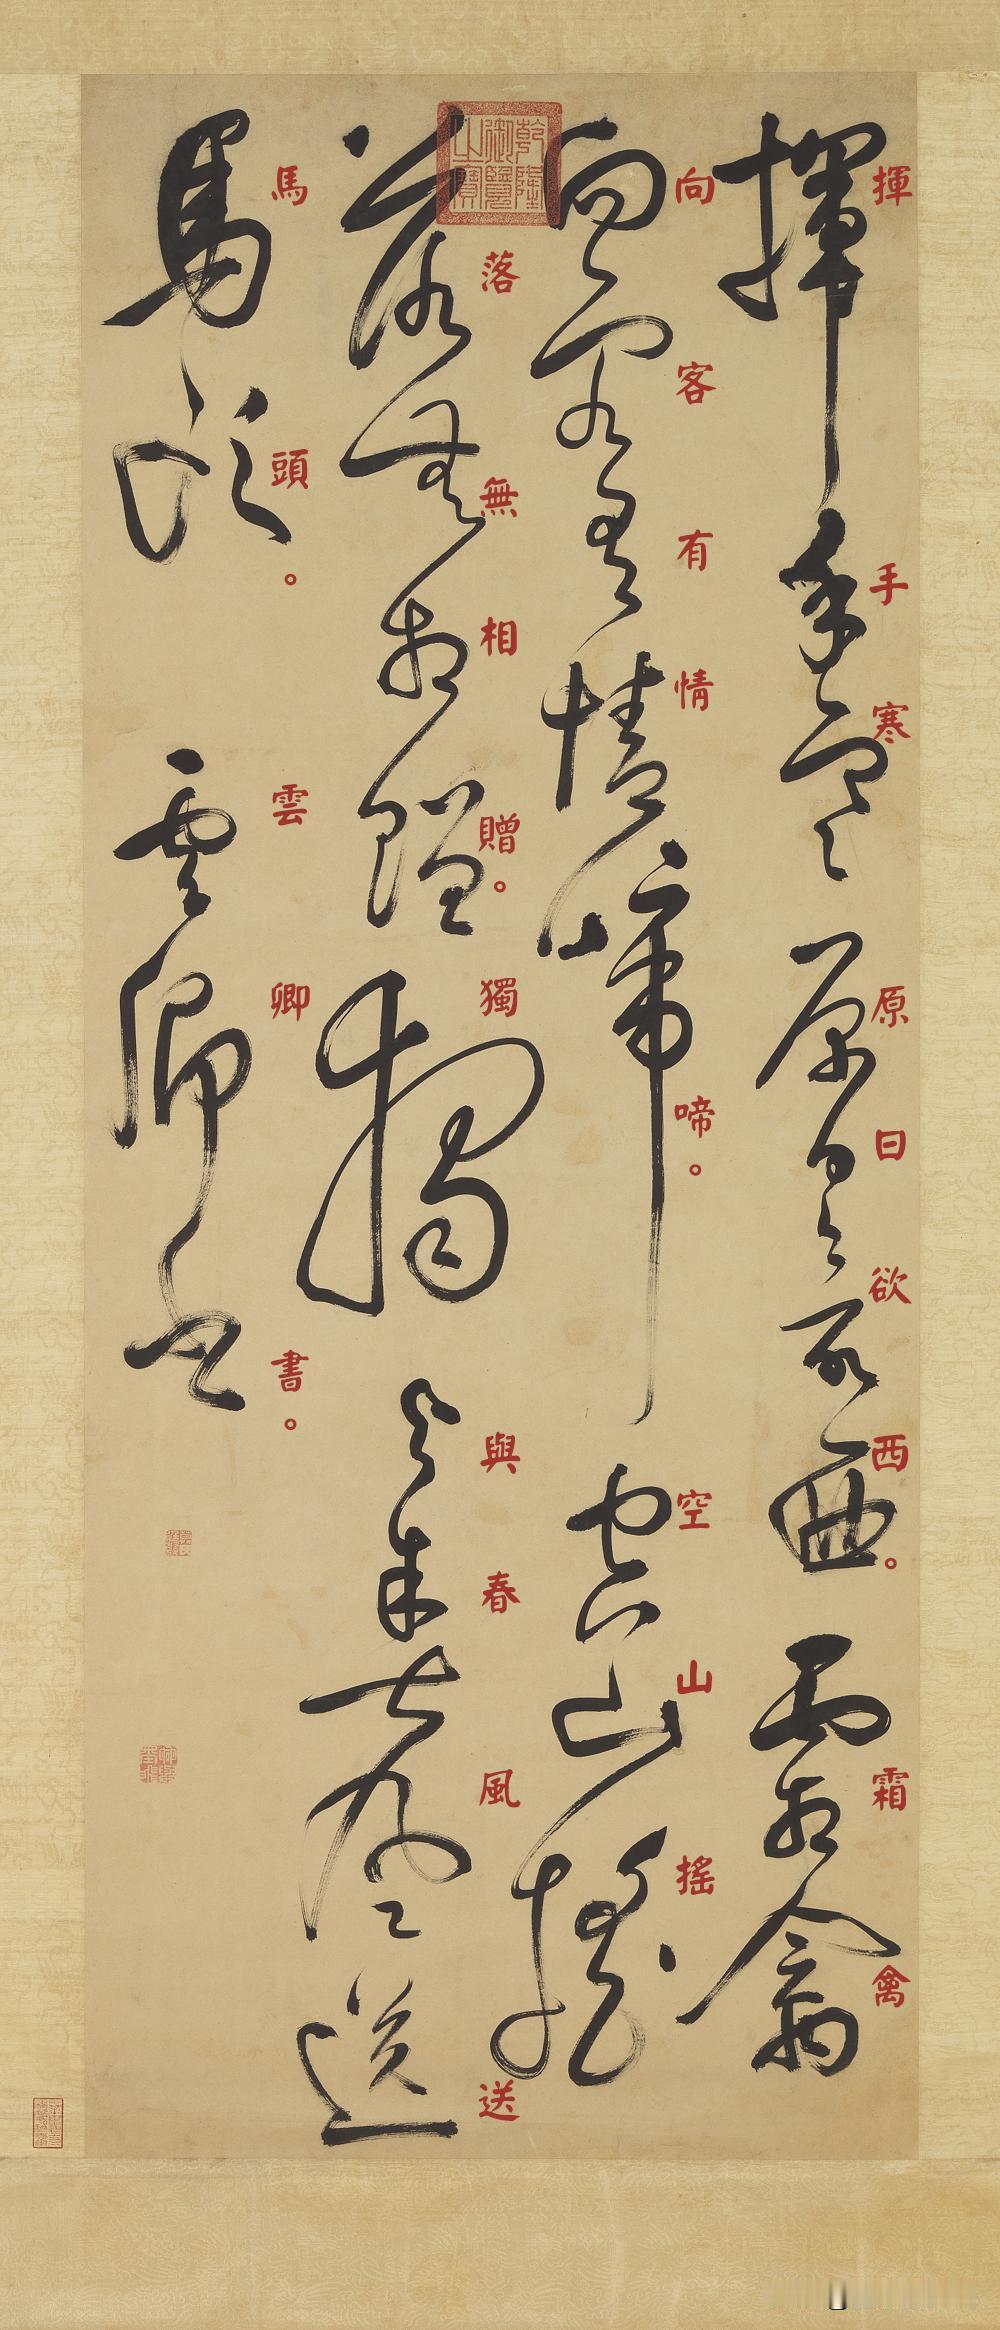 揮手寒原日欲西。霜禽
向客有情啼。空山搖
落無相贈。獨與春風送
馬頭。雲卿書。
乾隆御覽之寶